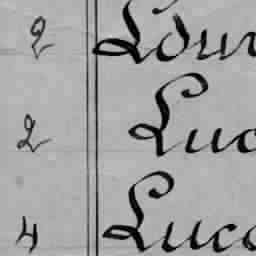 2 Lour
2 Luc
4 Luca